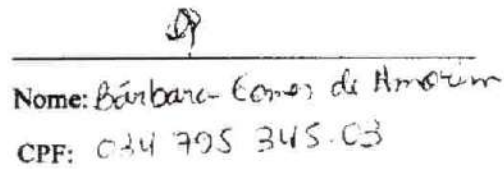 Nome: Bárbara Gomes de Amorim
CPF: 034 795 345.03